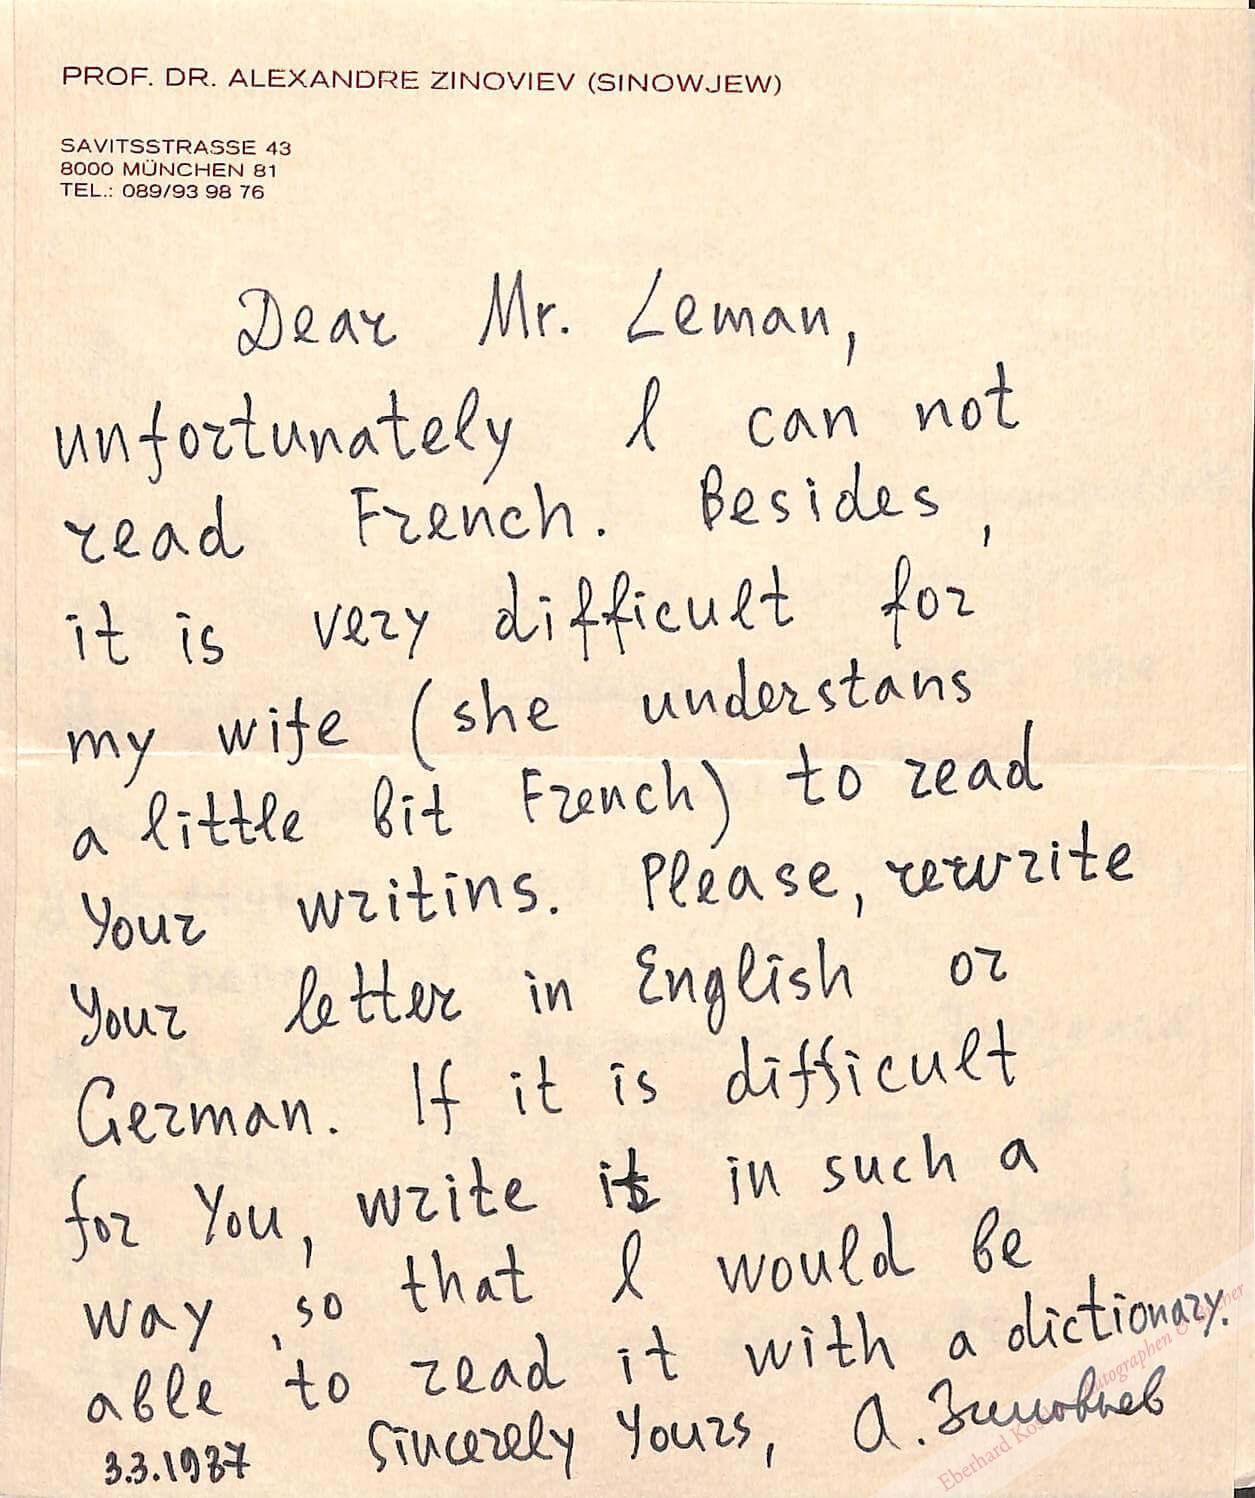 PROF. DR. ALEXANDRE ZINOVIEV (SINOWJEW)
SAVITSSTRASSE 43
8000 MÜNCHEN 81
TEL.: 089/93 98 76
Dear Mr. Leman,
unfortunately I can not
read French. Besides,
it is very difficult for
my wife (she understans
a little bit French) to read
Your writins. Please, rewrite
Your letter in English or
German. If it is difficult
for You, write it in such a
way, so that I would be
able to read it with a dictionary.
Sincerely Yours, А. Зиновьев
3.3.1987
Eberhard Autographen & Bücher